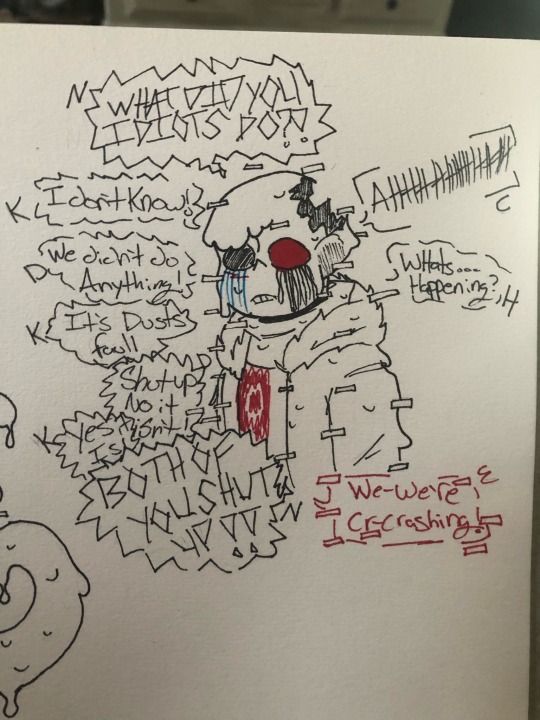 N
WHAT DID YOU
IDIOTS DO?!
K
I don't Know!
D
We didn't do
Anything!
K
It's Dusts
faul!
D
Shut up
No it
isn't
K
Yes it
Is!
BOTH OF
YOU SHUT
UP!!!
N
C
Whats...
Happening?
H
We-we're
Cr-crashing!
E